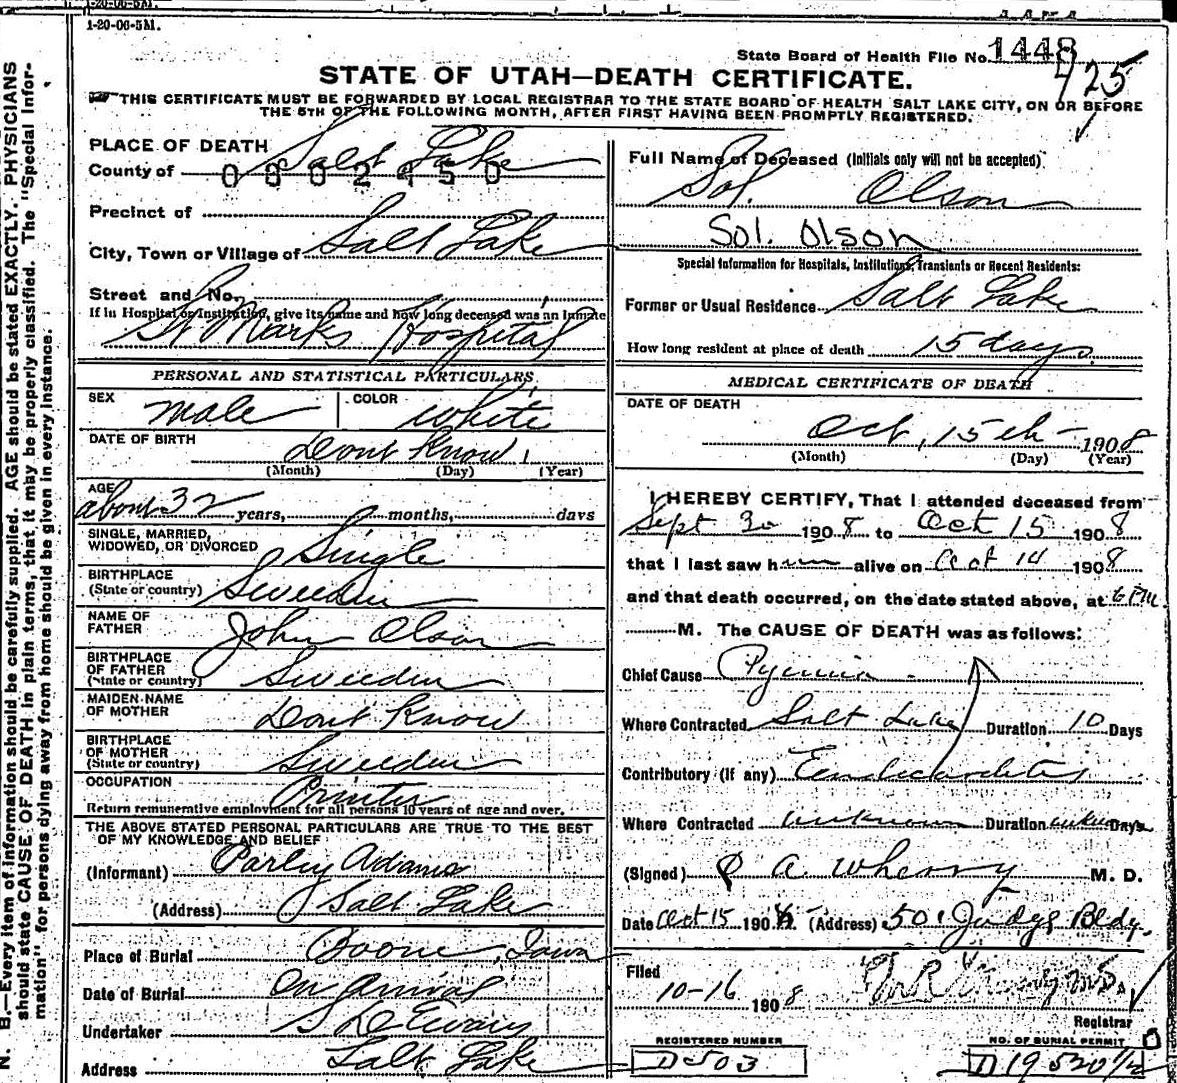 1-20-06-5M.
1-20-06-5M.
State Board of Health File No. 1448
425
STATE OF UTAH—DEATH CERTIFICATE.
THIS CERTIFICATE MUST BE FORWARDED BY LOCAL REGISTRAR TO THE STATE BOARD OF HEALTH SALT LAKE CITY, ON OR BEFORE
THE 5TH OF THE FOLLOWING MONTH, AFTER FIRST HAVING BEEN PROMPTLY REGISTERED.
N. B.—Every item of information should be carefully supplied. AGE should be stated EXACTLY. PHYSICIANS
should state CAUSE OF DEATH in plain terms, that it may be properly classified. The "Special Infor-
mation" for persons dying away from home should be given in every instance.
PLACE OF DEATH
County of Salt Lake
0802450
Precinct of
City, Town or Village of Salt Lake
Street and No.
If in Hospital or Institution, give its name and how long deceased was an Inmate
St Marks Hospital
PERSONAL AND STATISTICAL PARTICULARS
SEX male COLOR white
DATE OF BIRTH Dont Know
(Month) (Day) (Year)
AGE about 32 years, months, days
SINGLE, MARRIED,
WIDOWED, OR DIVORCED Single
BIRTHPLACE
(State or country) Sweeden
NAME OF
FATHER John Olson
BIRTHPLACE
OF FATHER
(State or country) Sweeden
MAIDEN NAME
OF MOTHER Dont Know
BIRTHPLACE
OF MOTHER
(State or country) Sweeden
OCCUPATION
Return remunerative employment for all persons 10 years of age and over.
THE ABOVE STATED PERSONAL PARTICULARS ARE TRUE TO THE BEST
OF MY KNOWLEDGE AND BELIEF
(Informant) Parley Adams
(Address) Salt Lake
Place of Burial Boone, Iowa
Date of Burial On Arrival
Undertaker S D Evans
Address Salt Lake
Full Name of Deceased (Initials only will not be accepted)
Sol. Olson
Sol. Olson
Special Information for Hospitals, Institutions, Transients or Recent Residents:
Former or Usual Residence Salt Lake
How long resident at place of death 15 days
MEDICAL CERTIFICATE OF DEATH
DATE OF DEATH
Oct, 15th 1908
(Month) (Day) (Year)
I HEREBY CERTIFY, That I attended deceased from
Sept 30 1908 to Oct 15 1908
that I last saw him alive on Oct 14 1908
and that death occurred, on the date stated above, at 6 PM
M. The CAUSE OF DEATH was as follows:
Chief Cause Pyemia
Where Contracted Salt Lake Duration 10 Days
Contributory (If any) Endocarditis
Where Contracted unknown Duration unknown Days
(Signed) A. Wherry M. D.
Date Oct 15 190 (Address) 501 Judge Bldg.
Filed
10-16 1908
Registrar
REGISTERED NUMBER
D503
NO. OF BURIAL PERMIT
D 19520 1/2